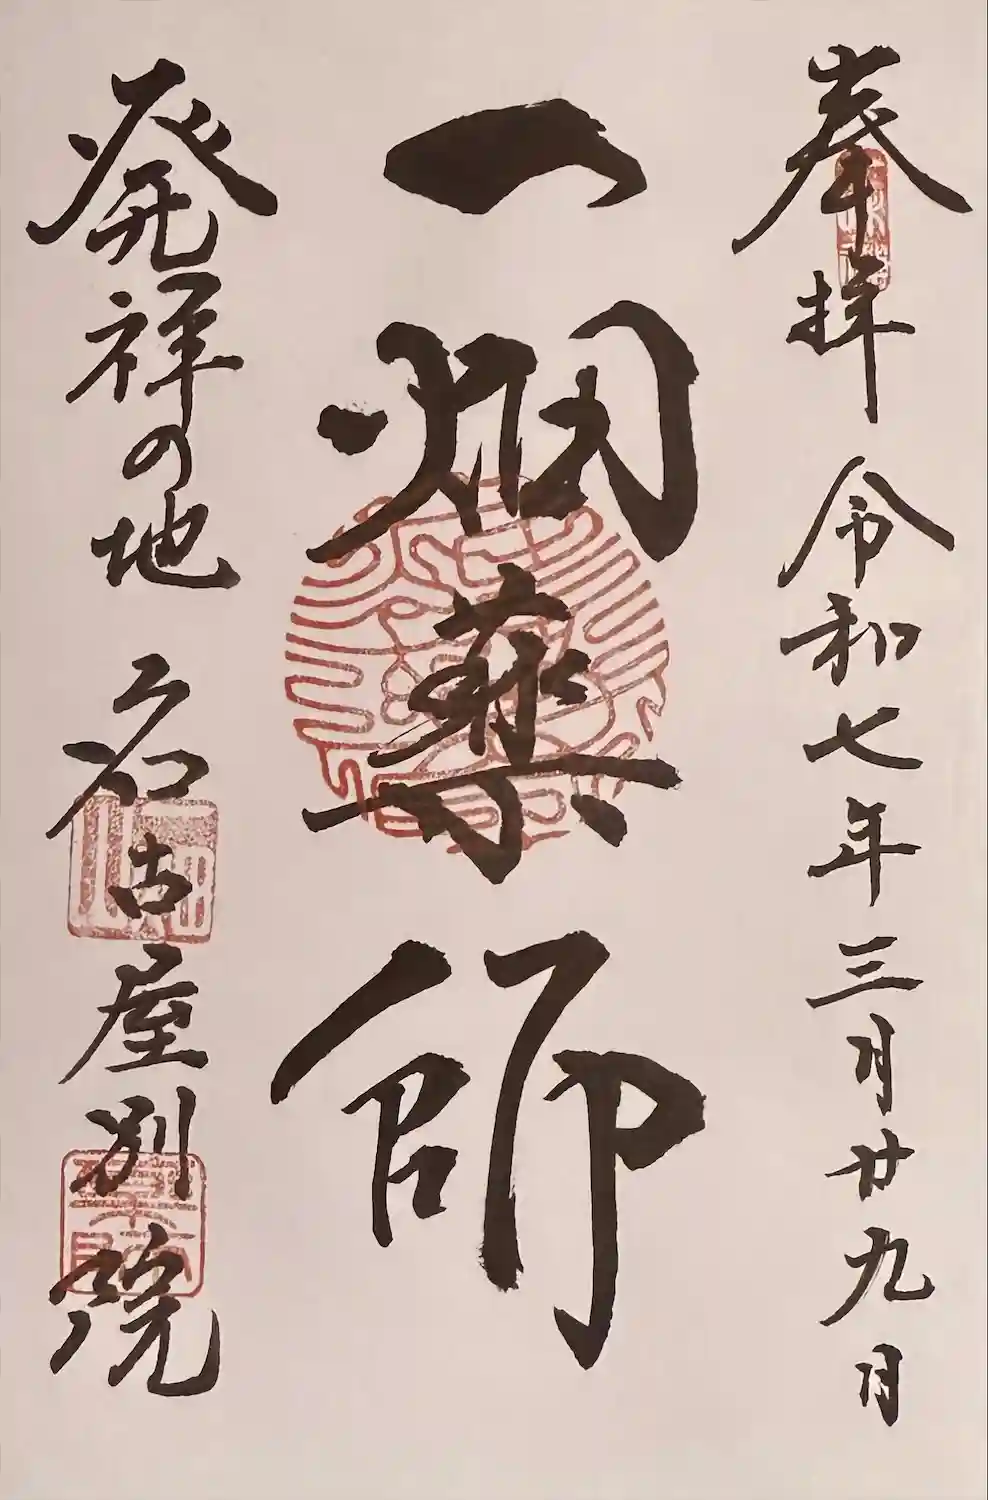 奉拝 令和七年三月廿九日
一畑薬師
発祥の地 名古屋別院